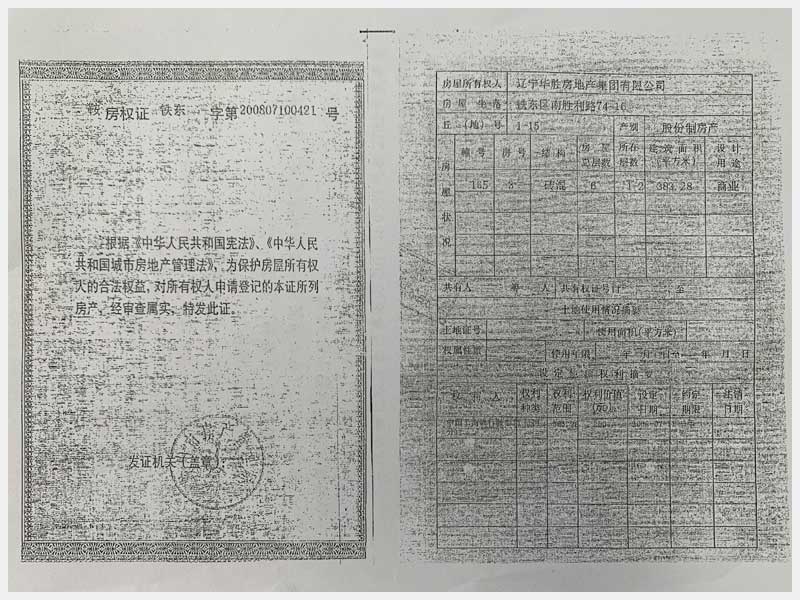 鞍 房权证 铁东 字第200807100421 号
根据《中华人民共和国宪法》、《中华人民
共和国城市房地产管理法》，为保护房屋所有权
人的合法权益，对所有权人申请登记的本证所列
房产，经审查属实，特发此证。
发证机关（盖章）：
房屋所有权人 辽宁华胜房地产集团有限公司
房屋坐落 铁东区南胜利路74-16
丘（地）号 1-15 产别 股份制房产
房屋状况 幢号 房号 结构 房屋总层数 所在层数 建筑面积（平方米） 设计用途
3 砖混 6 1-2 383.28 商业
共有人 等 人 共有权证号自 至
土地使用情况摘要
土地证号 使用面积(平方米)
权属性质 使用年限 年 月 日至 年 月 日
设定他项权利摘要
权利人 权利种类 权利范围 权利价值(元) 设定日期 约定期限 注销日期